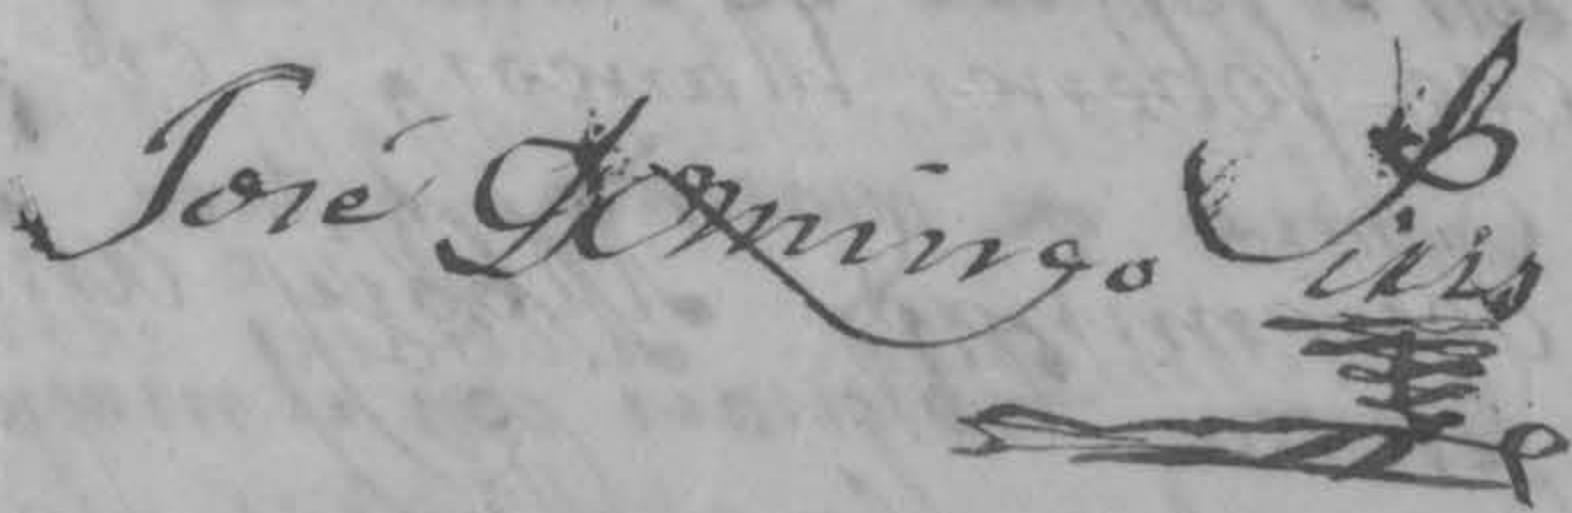 José Domingo Piris